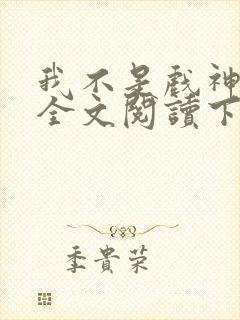 我不是戲神
全文閱讀下
季貴荣